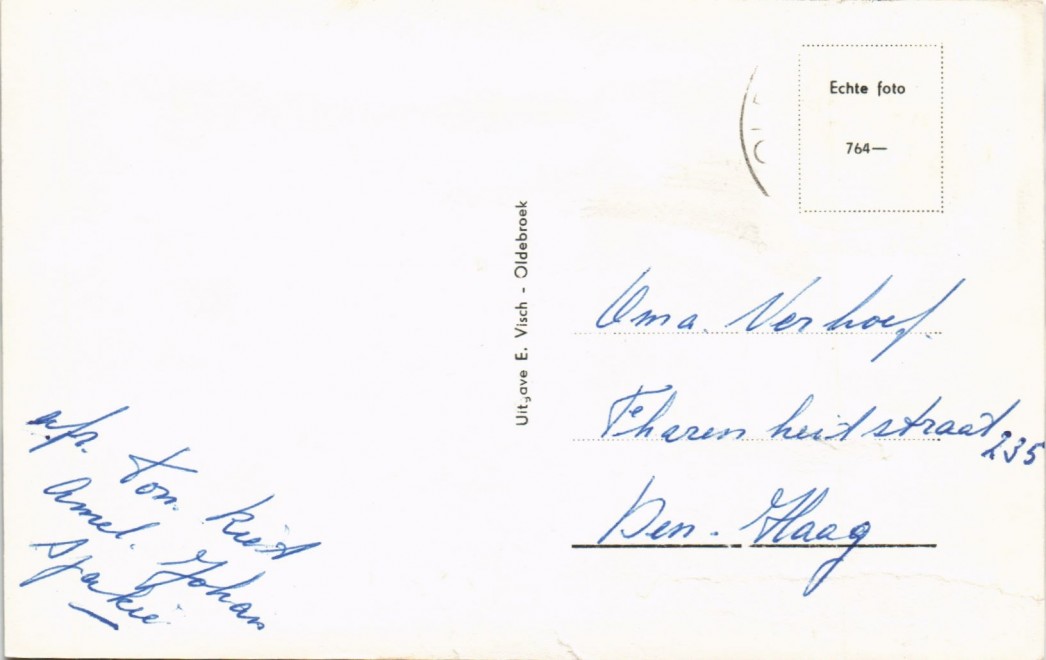 Echte foto
764—
Uitgave E. Visch - Oldebroek
Oma. Verhoef.
Fharenheitstraat 235
Den-Haag
afz. Ton. Riet
Amel. Johan
Sjakie